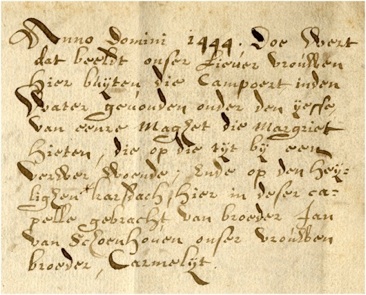 Anno Domini 1444. Doe Wert
dat beeldt onser Liever vrouwen
hier buijten die Campoert inden
Water gevonden onder den yesse
van eenre Maghet die Margriet
hieten, die op die tijt bij een
verwer woende; Ende op den hey-
lighen karsdach, hier in deser ca-
pelle gebracht van broeder Jan
van Schoenhoven onser vrouwen
broeder, Carmelijt.